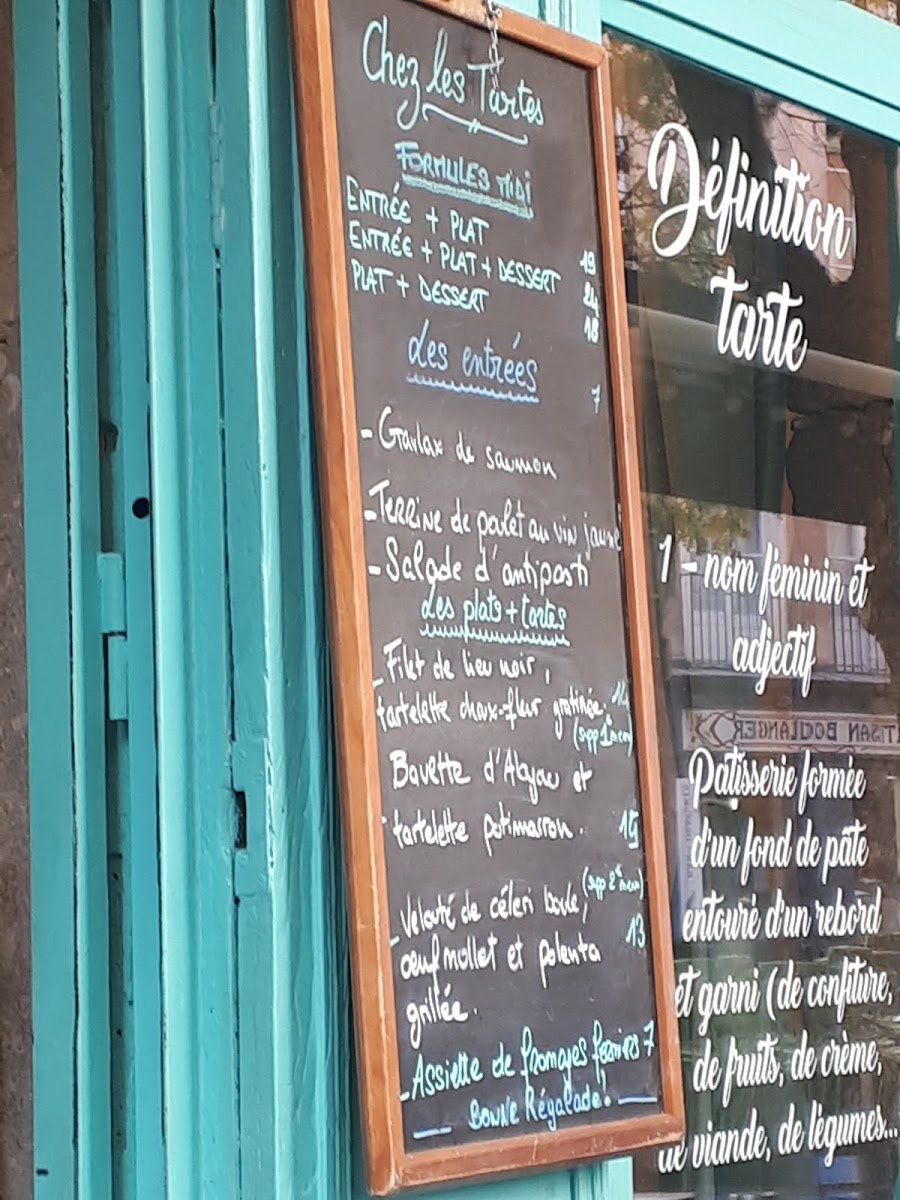 Chez les Tartes
FORMULES MIDI
ENTRÉE + PLAT 19
ENTRÉE + PLAT + DESSERT 24
PLAT + DESSERT 18
Les entrées 7
- Gravlax de saumon
- TERRINE de poulet au vin jaune
- Salade d'antipasti
Les plats + tartes
- Filet de lieu noir,
tartelette choux-fleur gratinée.
(supp 1€ menu)
Bavette d'Aloyau et
tartelette potimarron. 15
(supp 2€ menu)
- Velouté de céleri boule,
œuf mollet et polenta 13
grillée.
- ASSIETTE de fromages fermiers 7
BONNE Régalade!
Définition
tarte
1 - nom féminin et
adjectif
Patisserie formée
d'un fond de pâte
entouré d'un rebord
et garni (de confiture,
de fruits, de crème,
de viande, de légumes...
TISAN BOULANGER